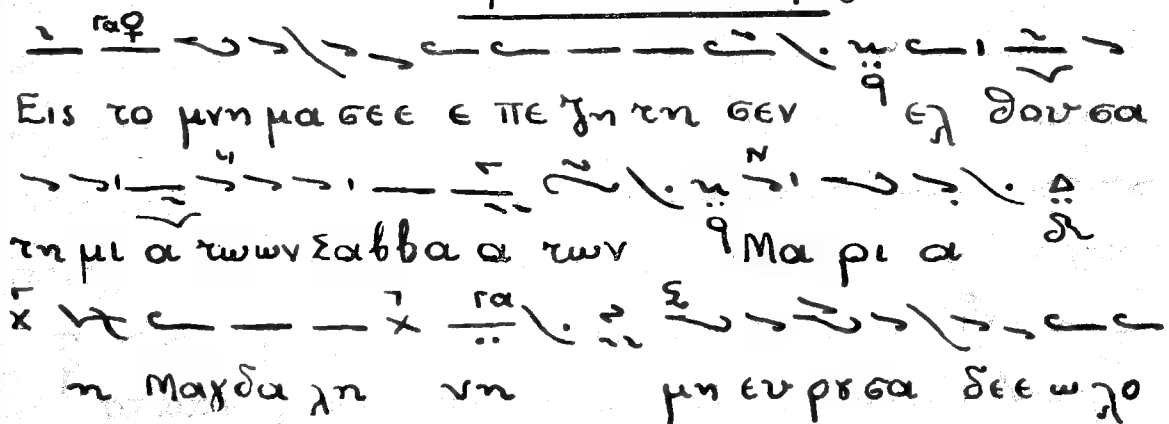 Εις το μνη μα σε ε ε πε ζη τη σεν ελ θου σα
τη μι α τωων Σαββα α των Μα ρι α
η Μαγδα λη νη μη ευ ρȣ σα δε ε ω λο